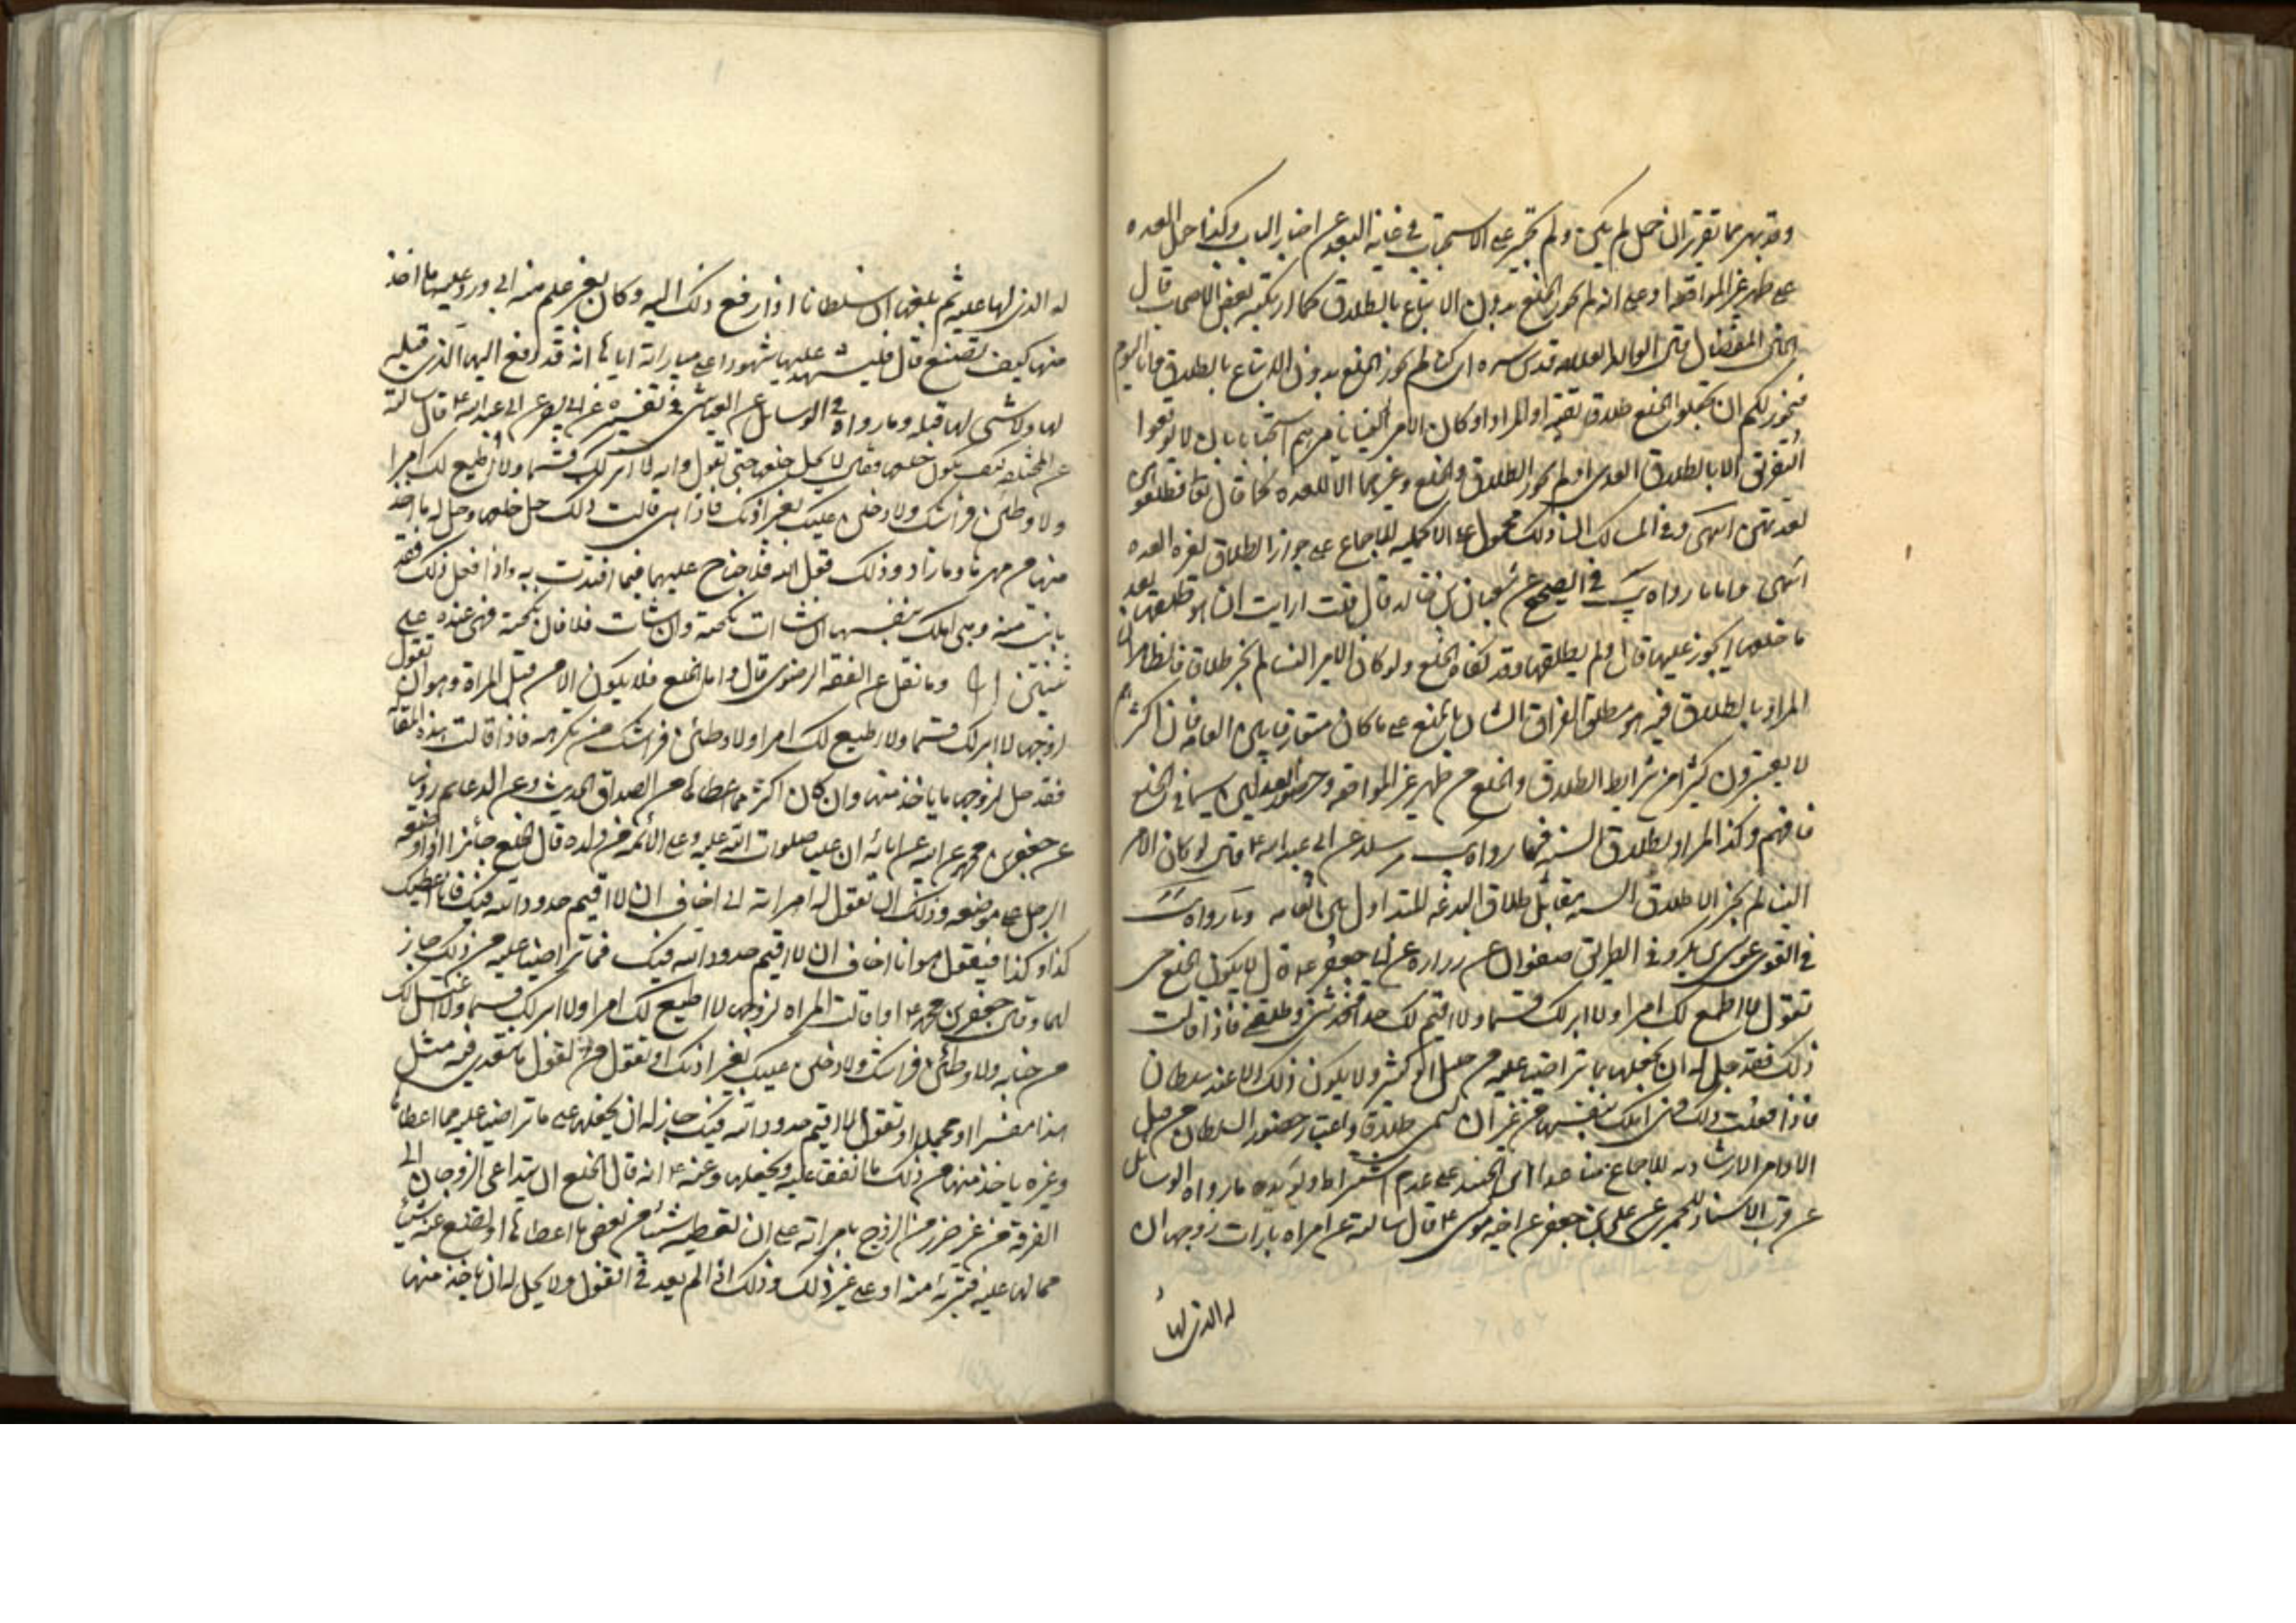 وقد ظهر مما تقرر ان حمل لم يكن ولم تخير على الاستحباب في غاية البعد عن اخبار الباب وكذا حمل العدة
على طهر غير المواقعة او على انه لم يجوز الخلع بدون الاتباع بالطلاق كما ارتكبه بعض الاصحاب قال
المفضال قال الوالد العلامة قدس سره اي كنا لم نجوز الخلع بدون الاتباع بالطلاق فاما اليوم
فنجوز لكم ان تجعلوا الخلع طلاقا تقية او المراد لو كان الامر الينا نامرهم استحبابا بان لا يوقعوا
التفريق الا بالطلاق العدي او لم نجوز الطلاق والخلع وغيرهما الا للعدة كما قال تعالى فطلقوهن
لعدتهن انتهى وفي المسالك ان ذلك محمول على الاكملية للاجماع على جواز الطلاق لغير العدة
انتهى واما ما رواه في الصحيح عن سليمان بن خالد قال قلت ارايت ان هو طلقها بعد
ما خلعها ايجوز عليها قال ولم يطلقها وقد كفاه الخلع ولو كان الامر الينا لم نجز طلاقا فالظاهر ان
المراد بالطلاق فيه هو مطلق الفراق الشامل للخلع على ما كان متعارفا بين العامة فان اكثرهم
لا يعتبرون كثيرا من شرايط الطلاق والخلع من طهر غير المواقعة وحضور العدلين لا سيما في الخلع
فافهم وكذا المراد بطلاق السنة فيما رواه مرسلا عن ابي عبد الله ع قال لو كان الامر
الينا لم نجز الا طلاق السنة مقابل طلاق البدعة المتداول بين العامة وما رواه
في القوي عن موسى بن بكر وفي الطريق صفوان عن زرارة عن ابي جعفر ع قال لا يكون الخلع حتى
تقول لا اطيع لك امرا ولا ابر لك قسما ولا اقيم لك حدا فخذ مني وطلقني فاذا قالت
ذلك فقد حل له ان يخلعها بما تراضيا عليه من قليل او كثير ولا يكون ذلك الا عند سلطان
فاذا فعلت ذلك فهي املك بنفسها من غير ان يسمى طلاقا واعتبار حضور السلطان من قبيل
الاوامر الارشادية للاجماع منا عدا ابن الجنيد على عدم اشتراطه ويؤيده ما رواه الوسائل
عن قرب الاسناد للحميري عن علي بن جعفر عن اخيه موسى ع قال سالته عن امراة بارات زوجها ان
له الذي لها
له الذي لها عليه ثم بلغها ان سلطانا اذا رفع ذلك اليه وكان بغير علم منه ابى ورد عليها ما اخذ
منها كيف يصنع قال فليشهد عليها شهودا على مباراته اياها انه قد دفع اليها الذي قبله
لها ولا شيء لها قبله وما رواه في الوسائل عن العياشي في تفسيره عن ابي بصير عن ابي عبد الله ع قال سالته
عن المختلعة كيف يكون خلعها فقال لا يحل خلعها حتى تقول والله لا ابر لك قسما ولا اطيع لك امرا
ولاوطئن فراشك ولادخلن عليك بغير اذنك فاذا هي قالت ذلك حل خلعها وحل له ما اخذ
منها من مهرها وما زاد وذلك قول الله فلا جناح عليهما فيما افتدت به واذا فعل ذلك فقد
بانت منه وهي املك بنفسها ان شاءت نكحته وان شاءت فلا فان نكحته فهي عنده على
ثنتين وما نقل عن الفقه الرضوي قال واما الخلع فلا يكون الا من قبل المراة وهو ان تقول
لزوجها لا ابر لك قسما ولا اطيع لك امرا ولاوطئن فراشك من تكرهه فاذا قالت هذه المقالة
فقد حل لزوجها ما ياخذ منها وان كان اكثر مما اعطاها من الصداق الحديث وعن الدعائم روينا
عن جعفر بن محمد عن ابيه عن ابائه ان عليا صلوات الله عليه وعلى الائمة من ولده قال الخلع جائز اذا وضعه
الرجل على موضعه وذلك ان تقول له امراته اني اخاف ان لا اقيم حدود الله فيك فانا اعطيك
كذا وكذا فيقول هو وانا اخاف ان لا اقيم حدود الله فيك فما تراضيا عليه من ذلك جاز
لهما وقال جعفر بن محمد ع اذا قالت المراة لزوجها لا اطيع لك امرا ولا ابر لك قسما ولا اغتسل لك
من جنابة ولاوطئن فراشك ولادخلن عليك بغير اذنك او تقول من القول ما تتعدى فيه مثل
هذا مفسرا او مجملا او تقول لا اقيم حدود الله فيك جاز له ان يخلعها على ما تراضيا عليه مما اعطاها
وغيره ياخذ منها من ذلك ما اتفقا عليه ويخلعها وعنه ع انه قال الخلع ان يتداعى الزوجان الى
الفرقة من غير ضرر من الزوج بامراته على ان تعطيه شيئا من بعض ما اعطاها او تضع عنه شيئا
مما لها عليه فتبرئه منه او على غير ذلك وذلك اذا لم يعد في القول ولا يحل له ان ياخذ منها